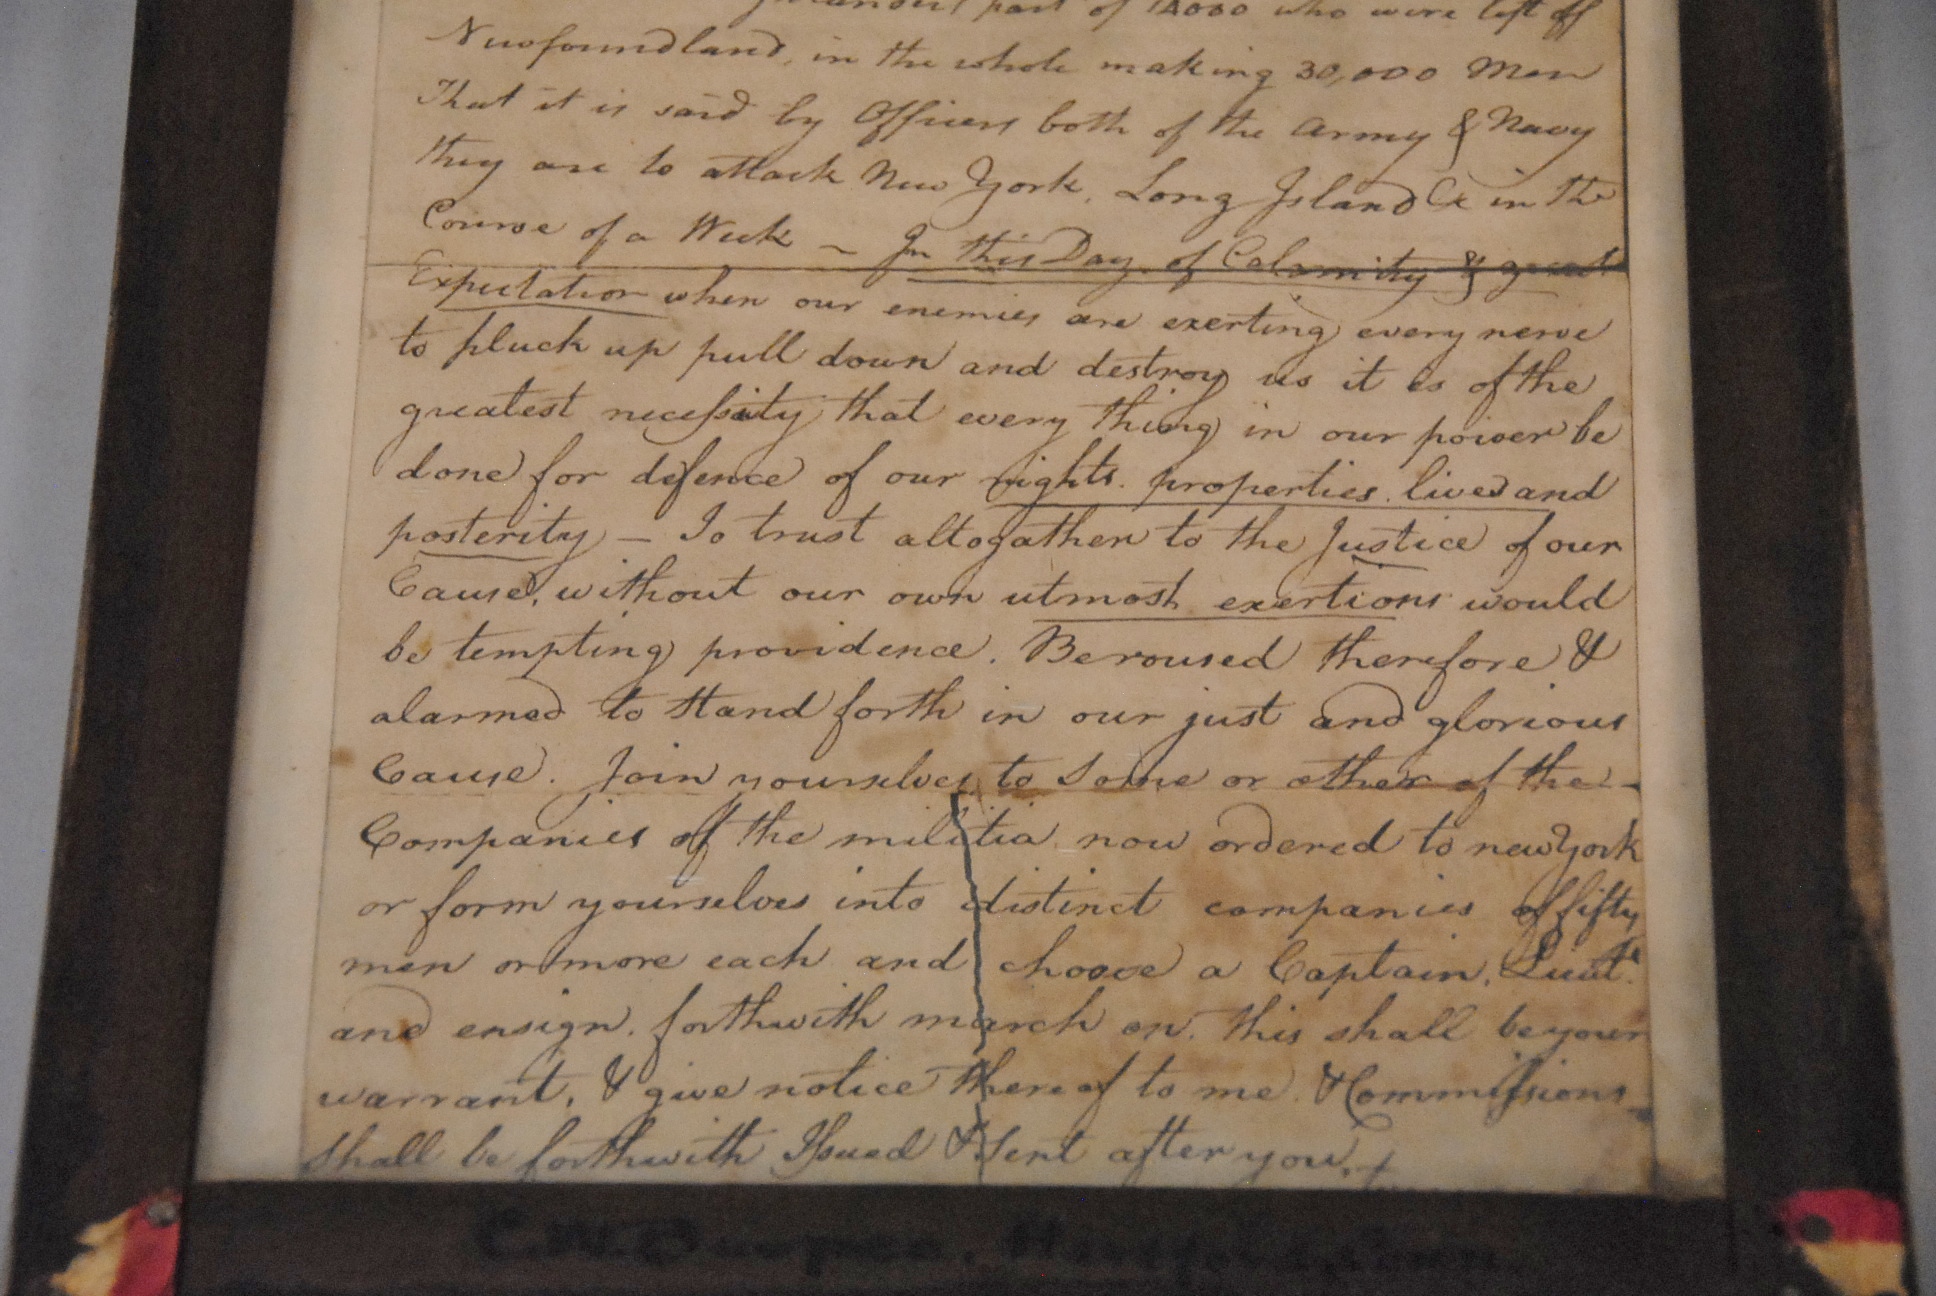 part of 12000 who were left off
Newfoundland, in the whole making 30,000 Men
That it is said by Officers both of the army & Navy
they are to attack New York, Long Island &c in the
Course of a Week ~ In this Day of Calamity & great
Expectation when our enemies are exerting every nerve
to pluck up pull down and destroy us it is of the
greatest necessity that every thing in our power be
done for defence of our rights. properties. lives and
posterity — To trust altogather to the Justice of our
Cause, without our own utmost exertions would
be tempting providence. Be roused therefore &
alarmed to stand forth in our just and glorious
Cause. Join yourselves to some or other of the
Companies of the militia now ordered to new York
or form yourselves into distinct companies of fifty
men or more each and choose a Captain, Lieut.
and ensign. forthwith march on. this shall be your
warrant, & give notice thereof to me. & Commissions
shall be forthwith Issued & sent after you.